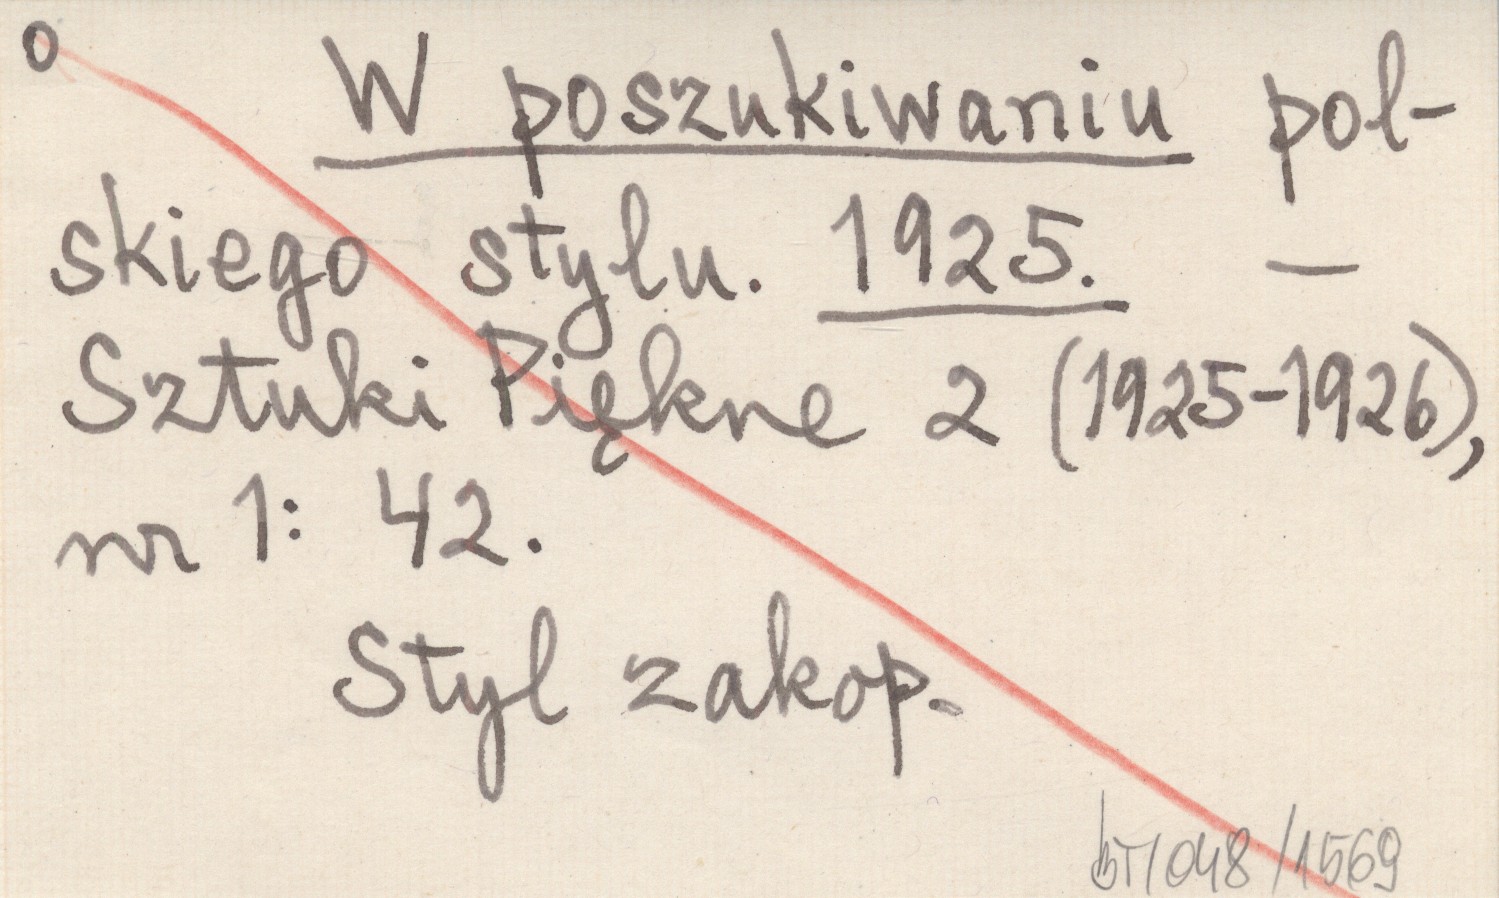 o W poszukiwaniu pol-
skiego stylu. 1925. —
Sztuki Piękne 2 (1925-1926),
nr 1: 42.
Styl zakop.
bT/048/1569